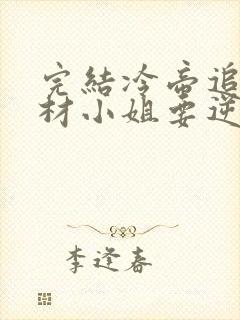 完結冷帝追
材小姐要逆
李逢春